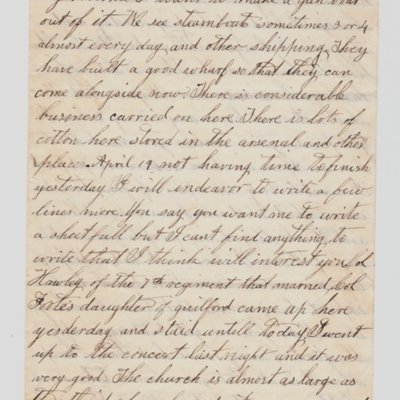 out of it. We see steamboats sometimes 3 or 4
almost every day and other shipping They
have built a good wharf so that they can
come alongside now There is considerable
business carried on here There is lots of
cotton here stored in the arsenal and other
places. April 19 not having time to finish
yesterday I will endeavor to write a few
lines more. You say you want me to write
a sheetfull but I cant find anything to
write that I think will interest you Col
Hawley of the 7th regment that married Col
Fotes daughter of guilford came up here
yesderday and staid untell to day I went
up to the concert last night and it was
very good The church is almost as large as